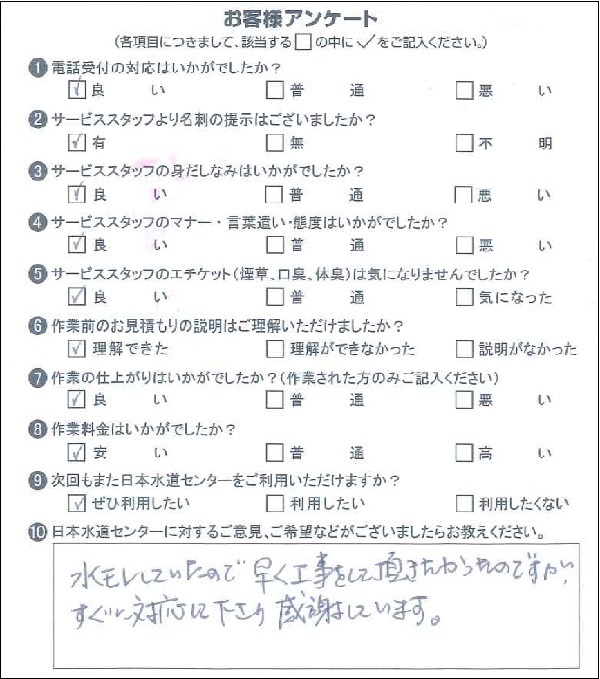 お客様アンケート
(各項目につきまして、該当する□の中に✓をご記入ください。)
❶ 電話受付の対応はいかがでしたか?
☑ 良い □ 普通 □ 悪い
❷ サービススタッフより名刺の提示はございましたか?
☑ 有 □ 無 □ 不明
❸ サービススタッフの身だしなみはいかがでしたか?
☑ 良い □ 普通 □ 悪い
❹ サービススタッフのマナー・言葉遣い・態度はいかがでしたか?
☑ 良い □ 普通 □ 悪い
❺ サービススタッフのエチケット(煙草、口臭、体臭)は気になりませんでしたか?
☑ 良い □ 普通 □ 気になった
❻ 作業前のお見積もりの説明はご理解いただけましたか?
☑ 理解できた □ 理解ができなかった □ 説明がなかった
❼ 作業の仕上がりはいかがでしたか?(作業された方のみご記入ください)
☑ 良い □ 普通 □ 悪い
❽ 作業料金はいかがでしたか?
☑ 安い □ 普通 □ 高い
❾ 次回もまた日本水道センターをご利用いただけますか?
☑ ぜひ利用したい □ 利用したい □ 利用したくない
❿ 日本水道センターに対するご意見、ご希望などがございましたらお教えください。
水モレしていたので早く工事をして頂きたかったのですが、
すぐに対応して下さり感謝しています。